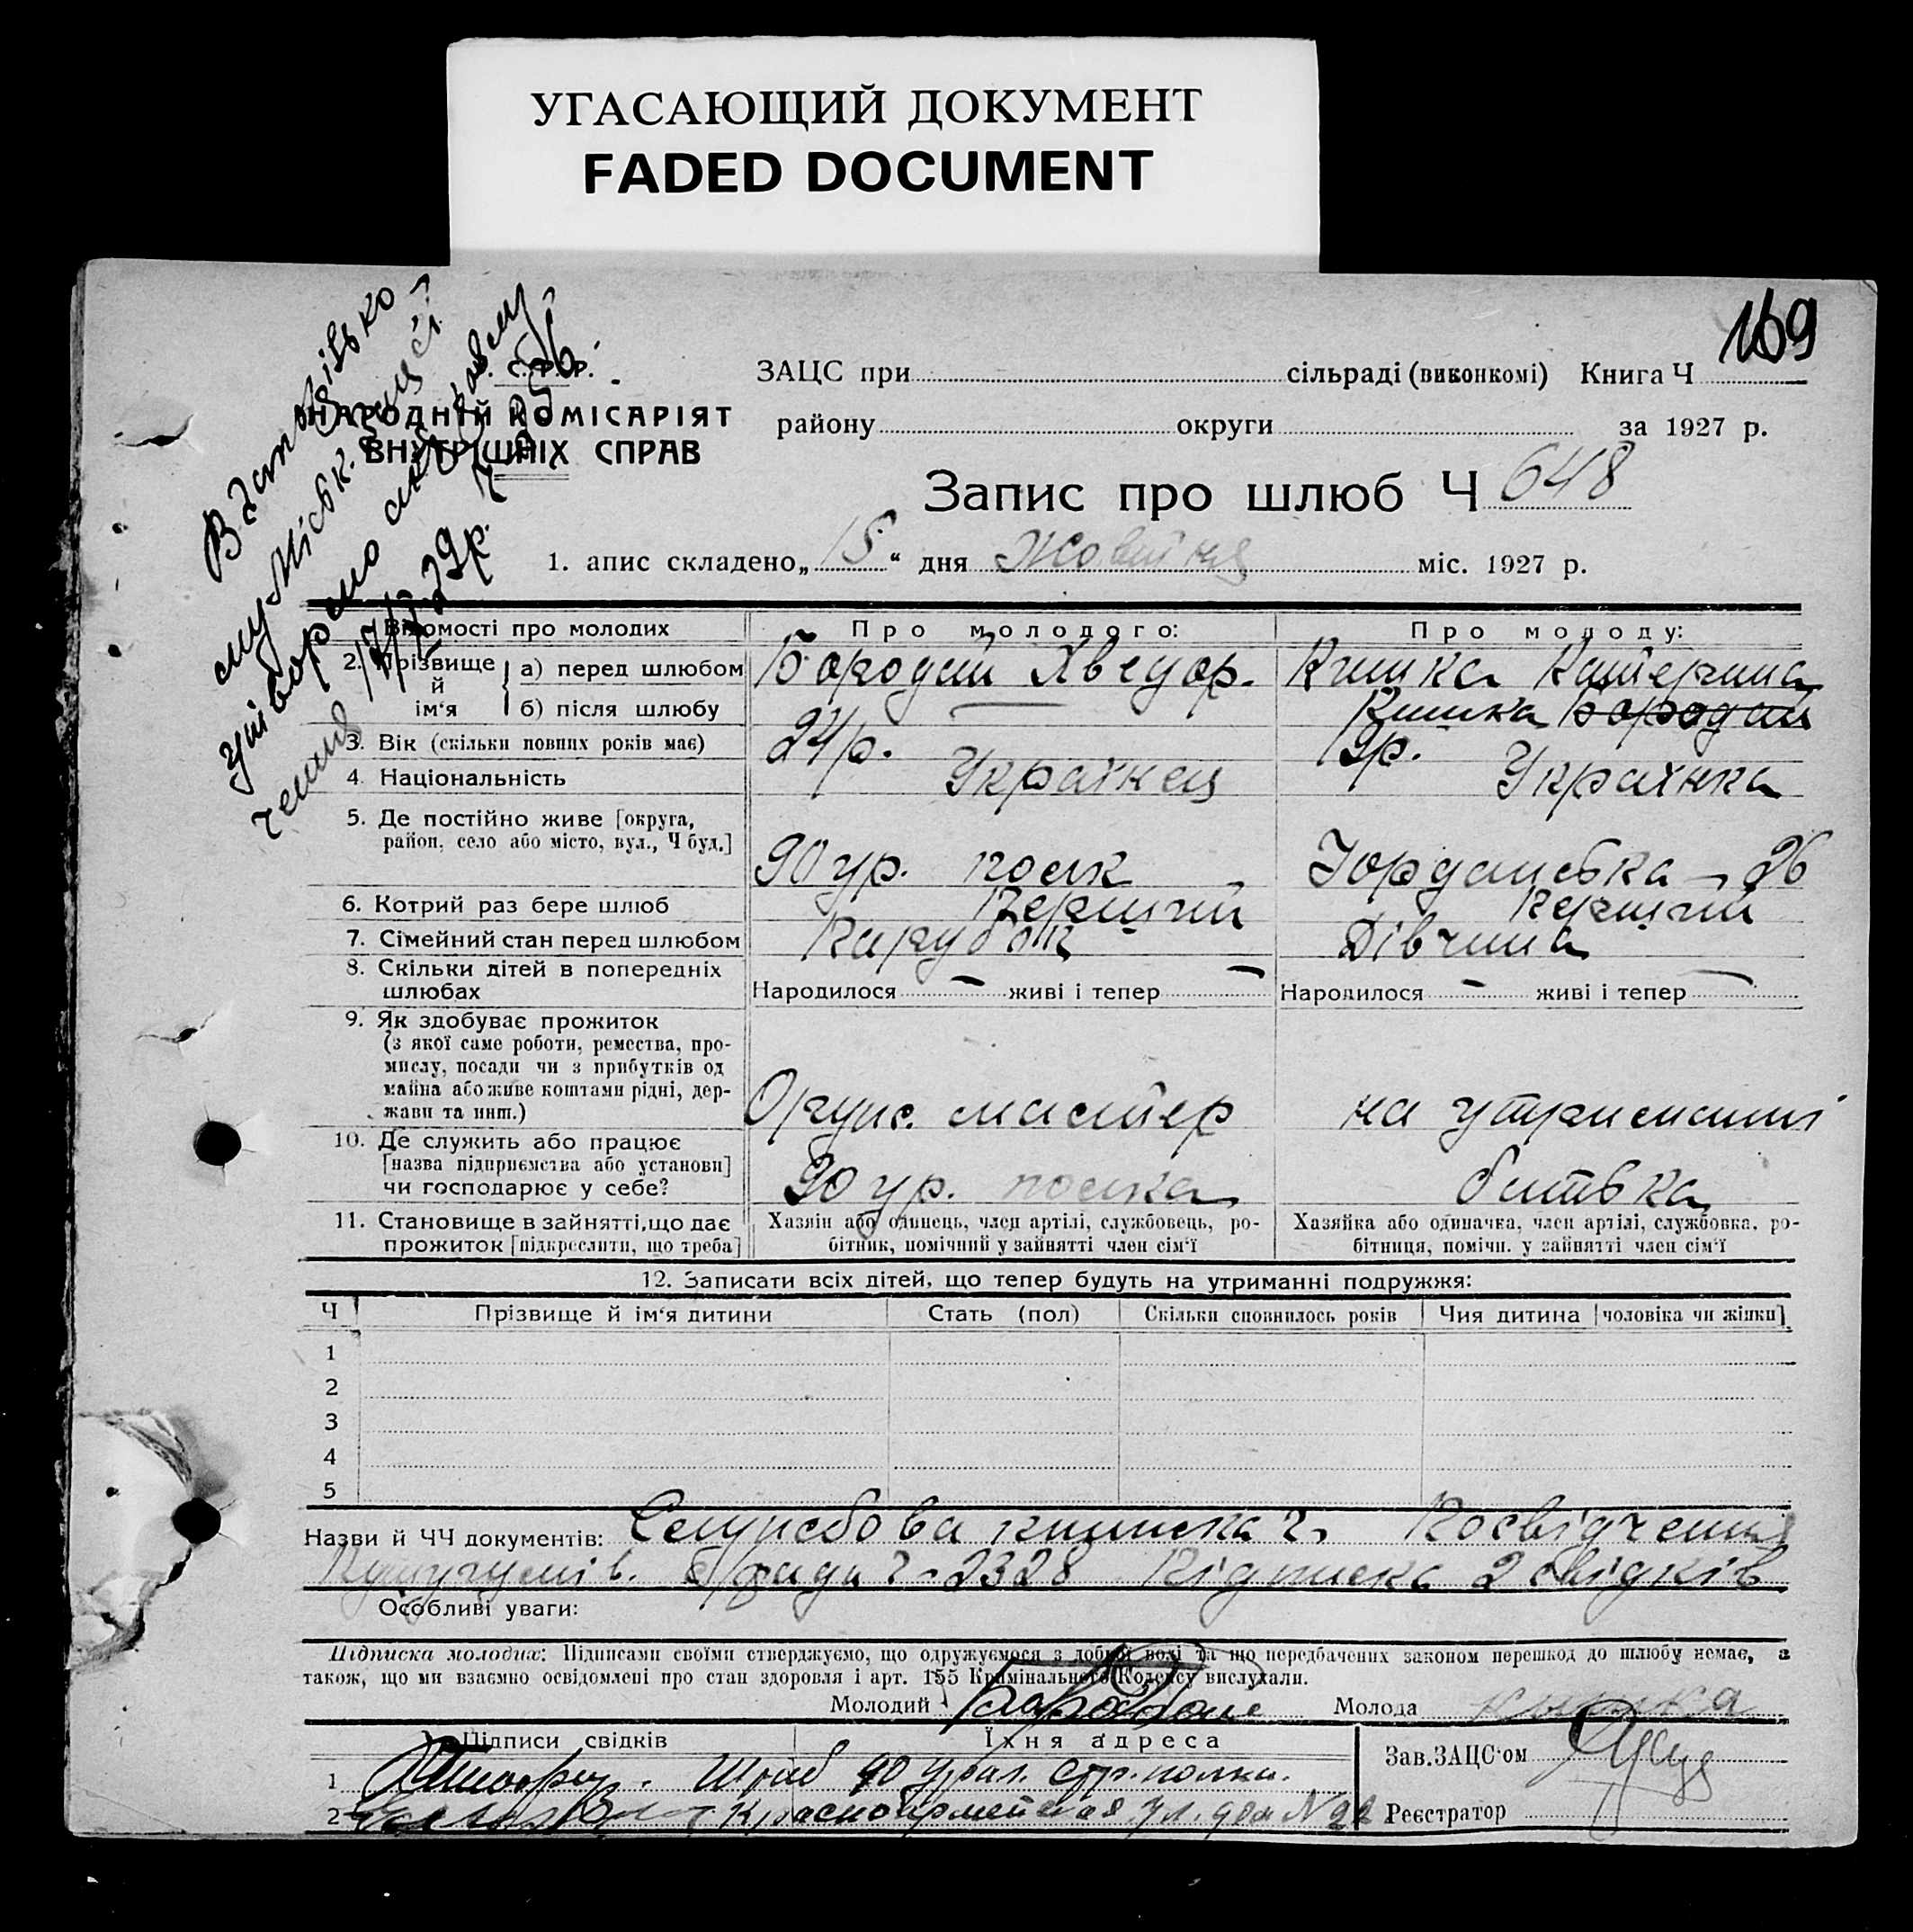 УГАСАЮЩИЙ ДОКУМЕНТ
FADED DOCUMENT
169
С. Р. Р.
НАРОДНІЙ КОМІСАРІЯТ
ВНУТРІШНІХ СПРАВ
ЗАЦС при сільраді (виконкомі) Книга Ч
району округи за 1927 р.
Запис про шлюб Ч 648
1. апис складено „15“ дня Жовтня міс. 1927 р.
Відомості про молодих Про молодого: Про молоду:
2. Прізвище й ім‘я а) перед шлюбом Бородай Хведор. Кишка Катерина
б) після шлюбу — Кишка Бородай
3. Вік (скільки повних років має) 24 р. 19р.
4. Національність Українец Українка
5. Де постійно живе [округа,
район, село або місто, вул., Ч буд.] 90 ур. полк Юрданська – 26
6. Котрий раз бере шлюб Перший Перший
7. Сімейний стан перед шлюбом Парубок Дівчина
8. Скільки дітей в попередніх
шлюбах Народилося — живі і тепер — Народилося — живі і тепер —
9. Як здобуває прожиток
(з якої саме роботи, ремества, про-
мислу, посади чи з прибутків од
майна або живе коштами рідні, дер-
жави та инш.) Оруж. мастер на утриманні
10. Де служить або працює
[назва підприємства або установи]
чи господарює у себе? 90 ур. полка батька
11. Становище в зайнятті, що дає
прожиток [підкреслити, що треба]
Хазяін або одинець, член артілі, службовець, ро-
бітник, помічний у зайнятті член сім‘ї
Хазяйка або одиначка, член артілі, службовка, ро-
бітниця, помічн. у зайнятті член сім‘ї
12. Записати всіх дітей, що тепер будуть на утриманні подружжя:
Ч Прізвище й ім‘я дитини Стать (пол) Скільки сповнилось років Чия дитина [чоловіка чи жінки]
1
2
3
4
5
Назви й ЧЧ документів: Службова книжка Посвідчення
2328 Підписка 2 свідків
Особливі уваги:
Підписка молодих: Підписами своїми стверджуємо, що одружуємося з доброї волі та що передбачених законом перешкод до шлюбу немає, а
також, що ми взаємно освідомлені про стан здоровля і арт. 155 Кримінального Кодексу вислухали.
Молодий Молода Кишка
Підписи свідків Їхня адреса Зав. ЗАЦС‘ом
1 Штаб 90 Урал. Стр. полка.
2 Красноармейская ул. дом № 22 Реєстратор